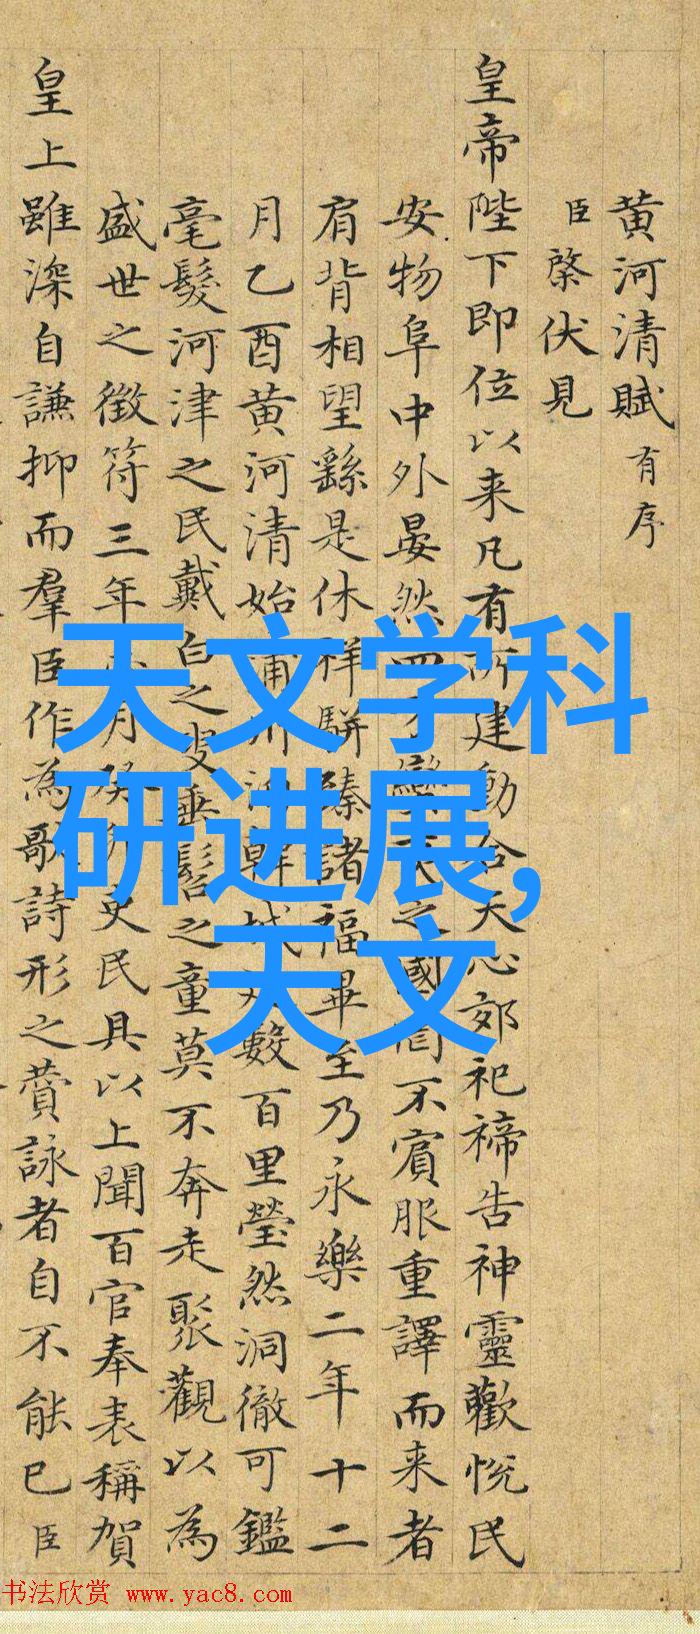 黄河清賦有序
臣棨伏見
皇帝陛下即位以来凡有所建動合天心郊祀禘告神靈歡悦民
安物阜中外晏然之國不賓服重譯而来者
肩背相望繇是休祥駢臻諸福畢至乃永樂二年十二
月乙酉黄河清始蒲數百里瑩然洞徹可鑑
毫髮河津之民戴白之叟垂髫之童莫不奔走聚觀以為
盛世之徴符三年月吏民具以上聞百官奉表稱賀
皇上雖深自謙抑而羣臣作為歌詩形之賛詠者自不能已臣
天文学科
研进展,
天文
书法欣赏 www.yac8.com